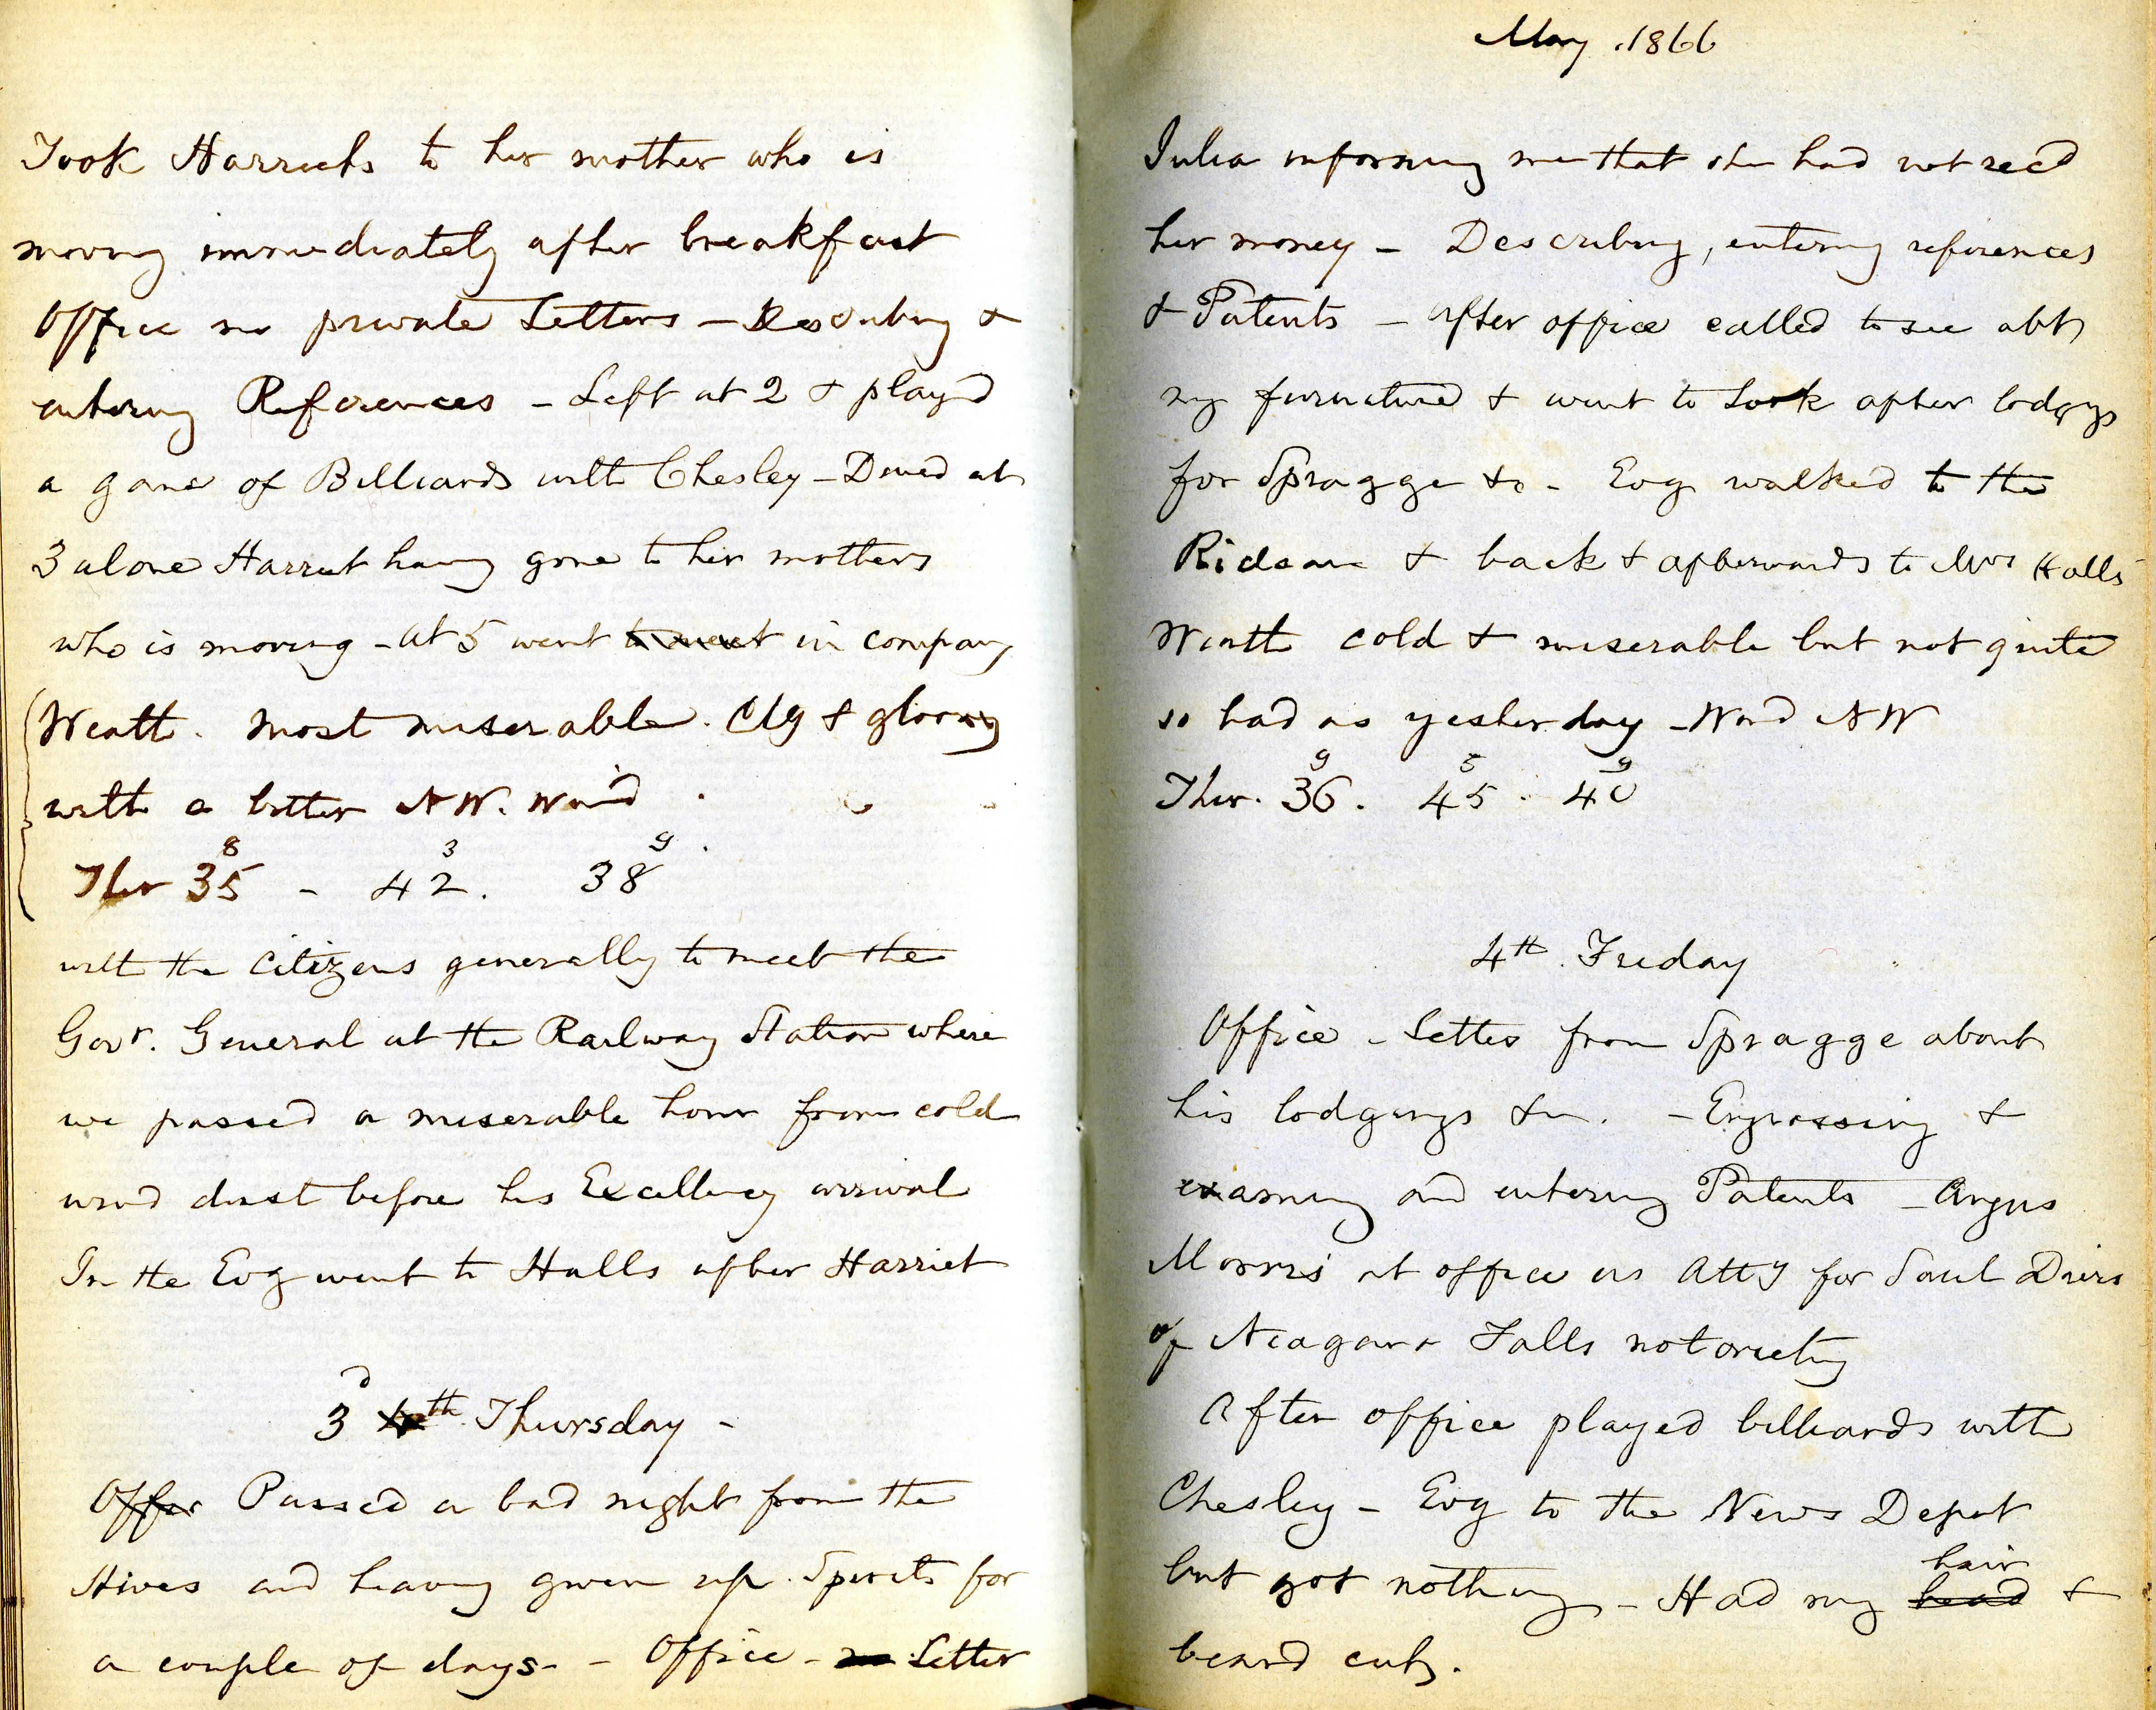 Took Harriets to her mother who is
moving immediately after breakfast
Office no private Letters – Describing &
entering References – Left at 2 & playd
a game of Billiards with Chesley – Dined at
3 alone Harriet having gone to her mothers
who is moving – at 5 went to meet in company
Weath. most miserable. Cldy & gloomy
with a bitter NW. Wind
8 3 9
Ther 35 – 42. 38
with the citizens generally to meet the
Govr. General at the Railway Station where
we passed a miserable hour from cold
wind dust before his Excellency arrival
In the Evg went to Halls after Harriet
3d 4th Thursday –
Office Passed a bad night from the
Hives and having given up Spirits for
a couple of days – – Office – no Letter
May 1866
Julia informing me that she had not recd
her money – Describing, entering references
& Patents – after office called to see abt
my furniture & went to Look after lodggs
for Spragge &c – Evg walked to the
Rideau & back & afterwards to Mrs Halls
Weath cold & miserable but not quite
so bad as yesterday – Wind NW
9 5 9
Ther. 36. 45. 40
4th. Friday
Office – Letter from Spragge about
his lodgings &c. – Engrossing &
examing and entering Patents – Angus
Morris at office as Atty for Saul
of Niagara Falls notoriety
After office played billiards with
Chesley – Evg to the News Depot
but got nothing – Had my head hair &
beard cut.